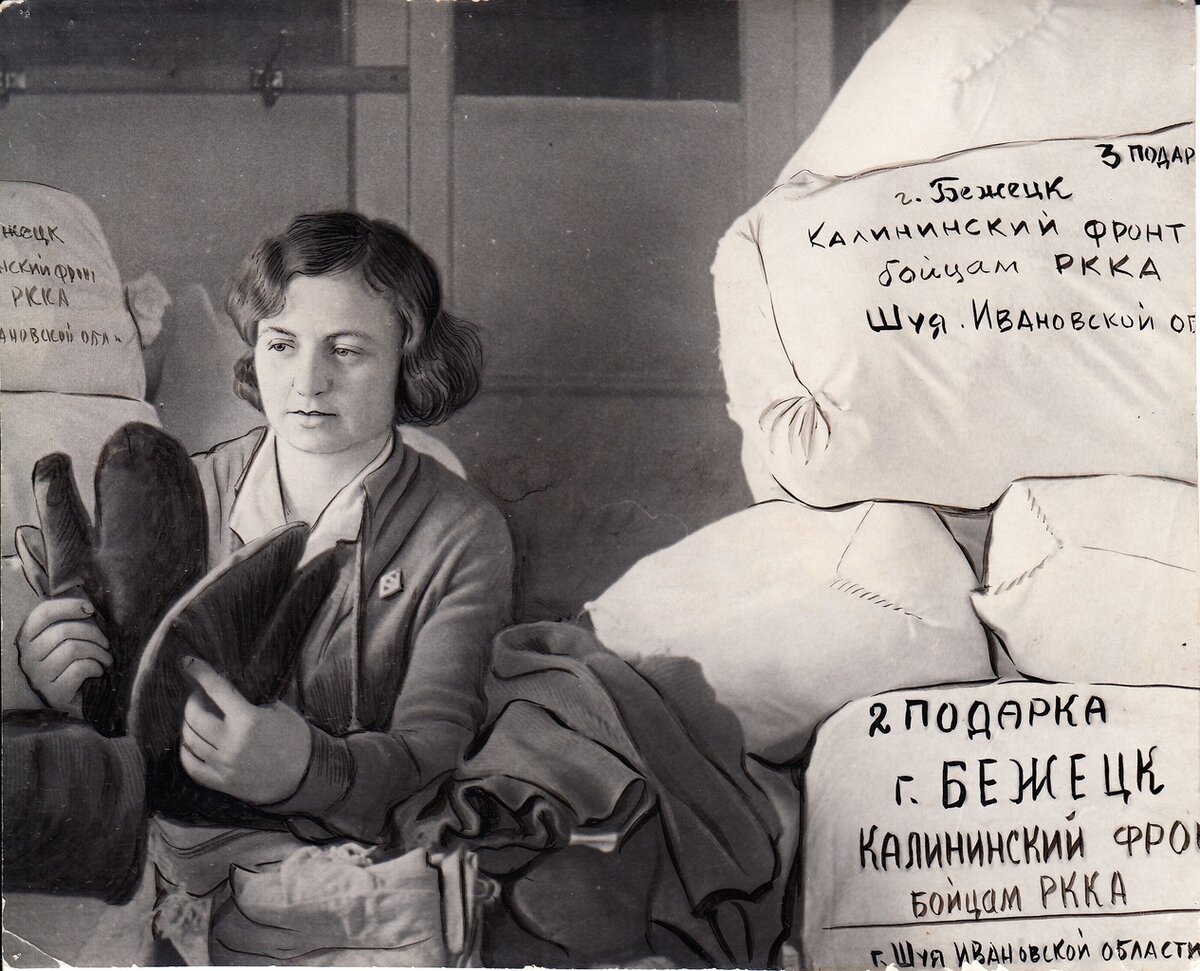 жецк
нский фронт
РККА
ановской обл.
3 ПОДАР
г. Бежецк
Калининский фронт
бойцам РККА
Шуя. Ивановской об
2 ПОДАРКА
г. БЕЖЕЦК
КАЛИНИНСКИЙ ФРОН
БОЙЦАМ РККА
г. Шуя Ивановской области